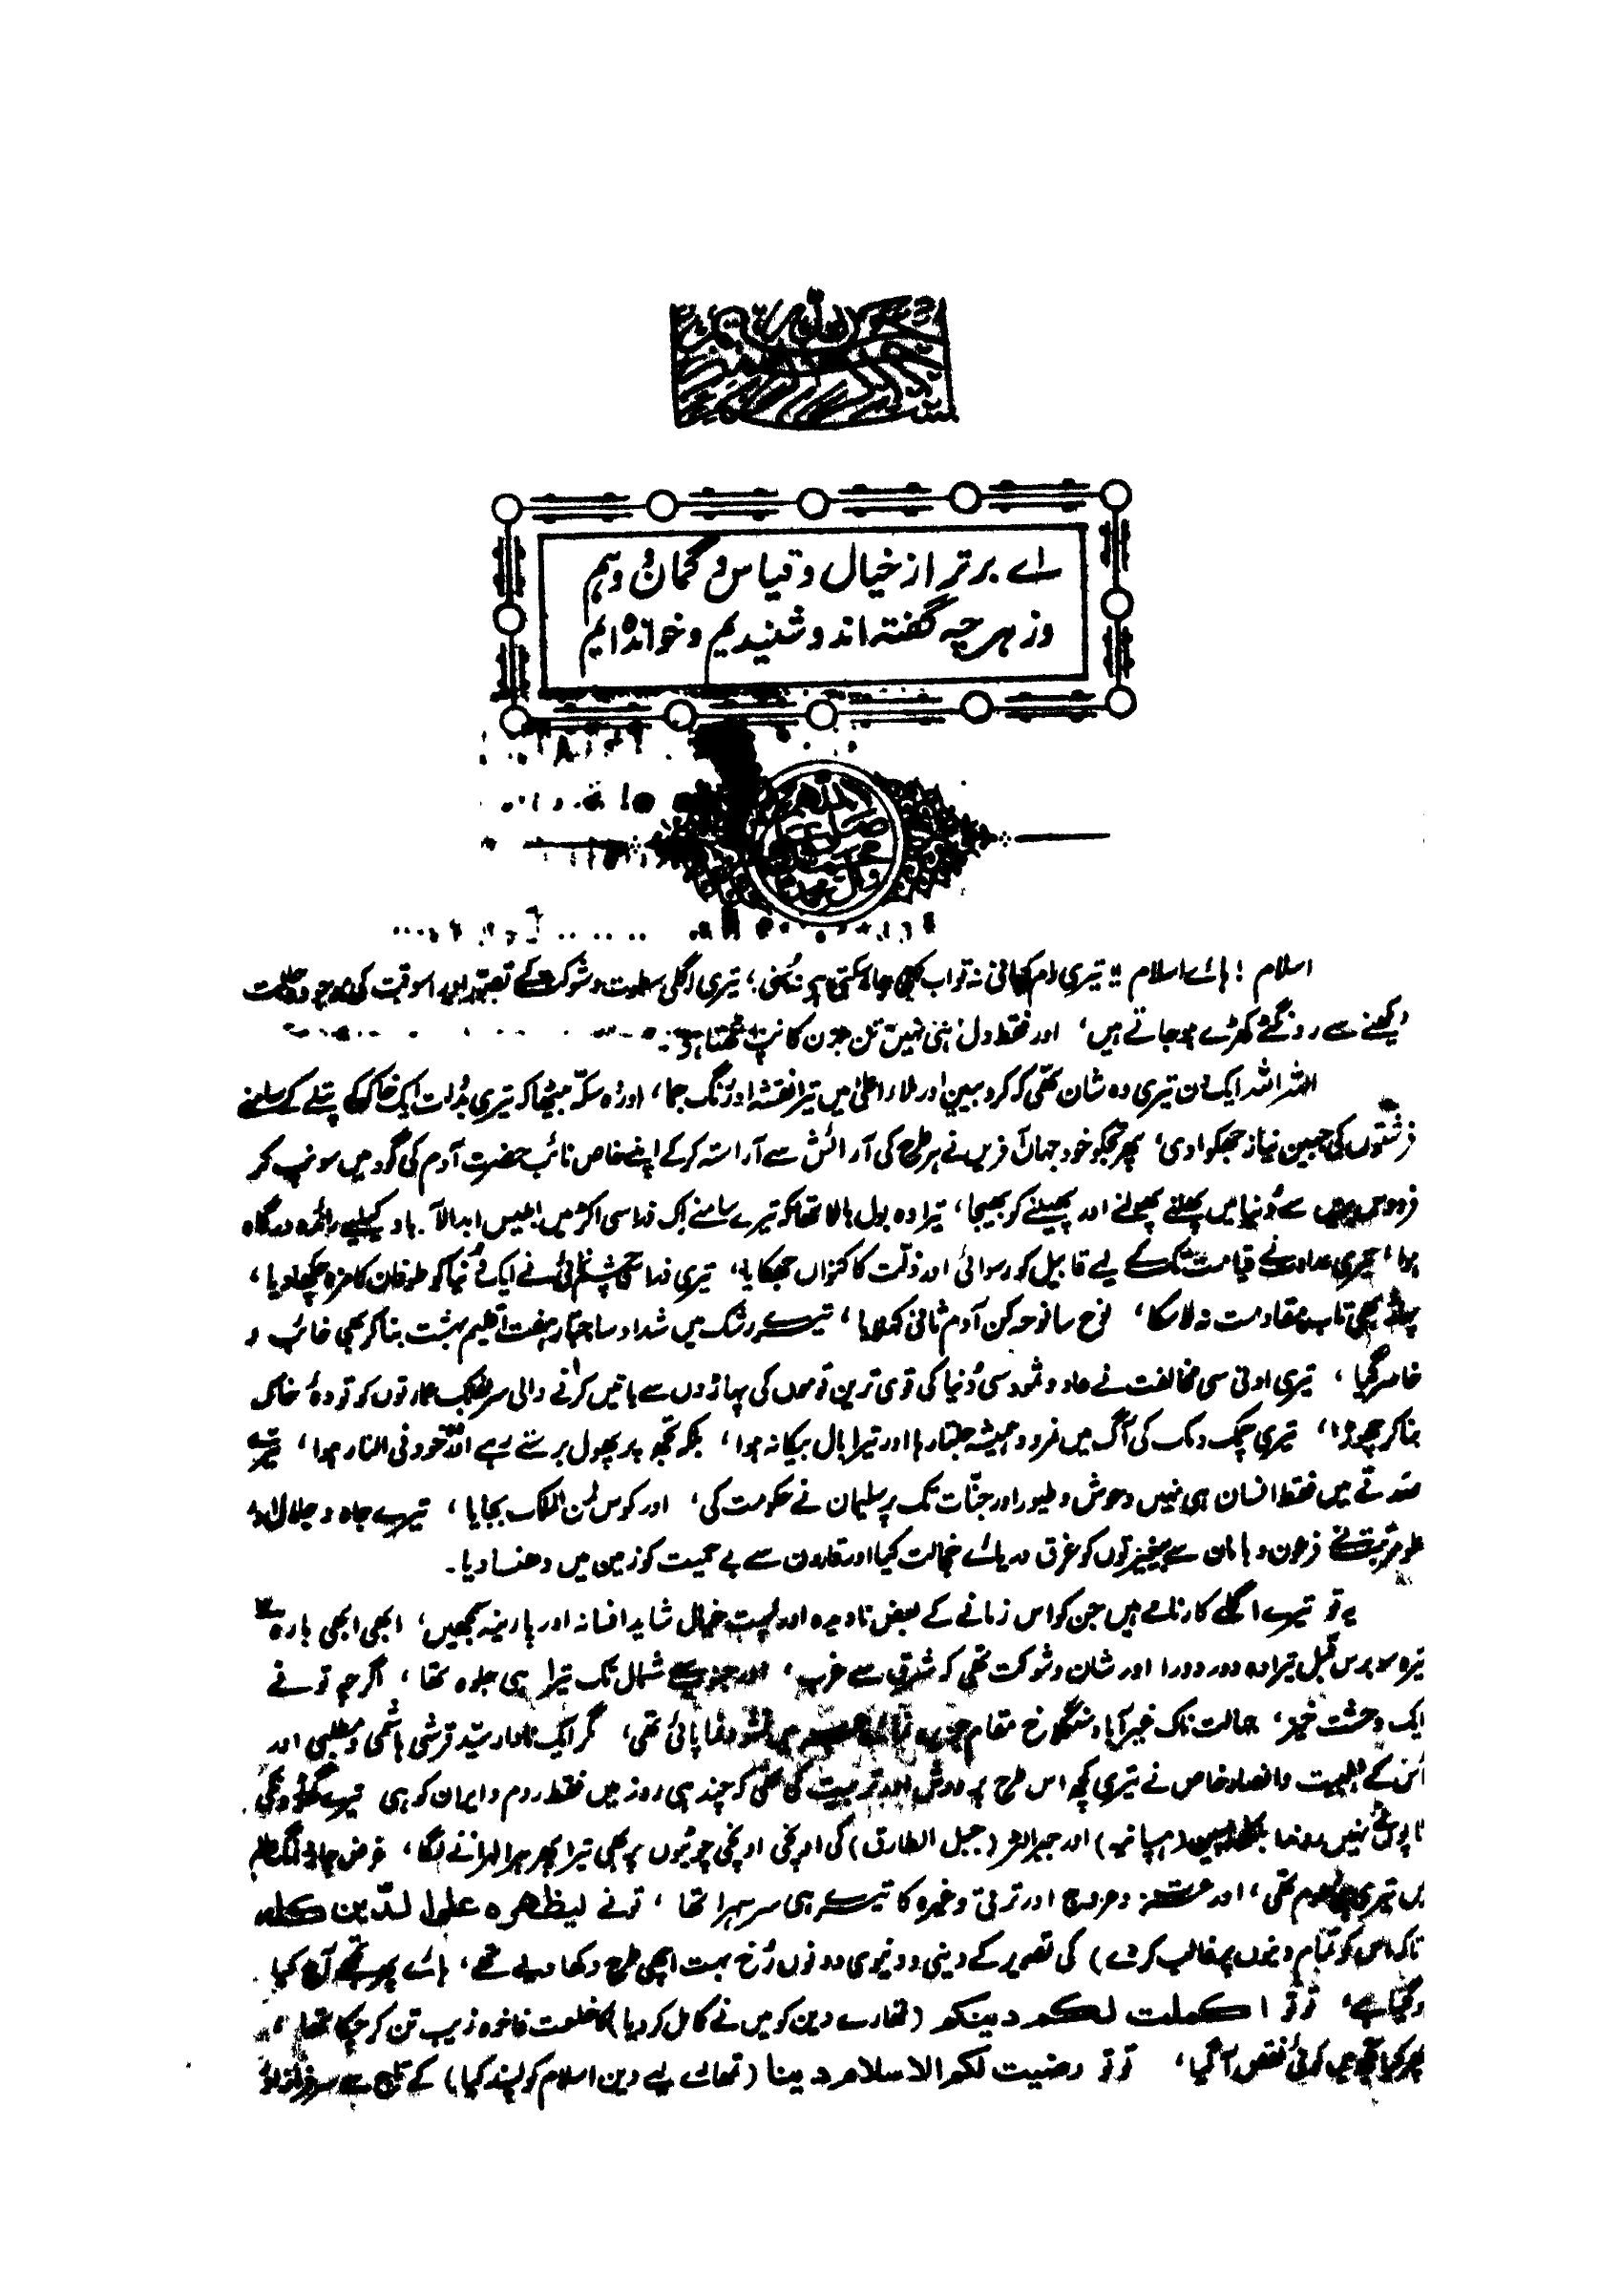 اے برتر از خیال و قیاس و گمان و وہم
وز هرچہ گفتہ اند و شنیدیم و خواندہ ایم
اللھم صل علی محمد وآل محمد
اسلام ! ہائے اسلام !! تیری رام کہانی نہ تو اب کہی جا سکتی ہے نہ سُنی؛ تیری اگلی سطوت و شوکت کے تصور اور اسوقت کی موجودہ حالت
دیکھنے سے رونگٹے کھڑے ہو جاتے ہیں، اور فقط دل ہی نہیں تن بدن کانپ اُٹھتا ہے۔
اللہ اللہ ایک دن تیری وہ شان تھی کہ کروبیین اور ملاء اعلیٰ میں تیرا نقشہ اور رنگ جما، اور وہ سکّہ بیٹھا کہ تیری بدولت ایک خاک کے پتلے کے سامنے
فرشتوں کی جبین نیاز جھکوا دی، پھر تجھکو خود جہاں آفریں نے ہر طرح کی آرائش سے آراستہ کر کے اپنے خاص نائب حضرت آدم کی گود میں سونپ کر
فردوس بریں سے دُنیا میں پھلنے پھولنے اور پھیلنے کو بھیجا، تیرا وہ بول بالا تھا کہ تیرے سامنے اک ذرا سی اکڑ میں ابلیس ابد الآباد کیلیے راندہ درگاہ
ہوا، تیری عداوت نے قیامت تک کے لیے قابیل کو رسوائی اور ذلّت کا کنواں جھکایا، تیری ذرا سی چشم نمائی نے ایک دُنیا کو طوفان کا مزہ چکھا دیا،
پہاڑ بھی تاب مقاومت نہ لا سکا، نوح سا نوحہ کن آدم ثانی کہلایا، تیرے رشک میں شداد سا جبّار ہفت اقلیم بہشت بنا کر بھی خائب و
خاسر گیا، تیری ادنیٰ سی مخالفت نے عاد و ثمود سی دُنیا کی قوی ترین قوموں کی پہاڑوں سے باتیں کرنے والی سر بفلک عمارتوں کو تودۂ خاک
بنا کر چھوڑا، تیری چمک دمک کی آگ میں نمرود ہمیشہ جلتا رہا اور تیرا بال بیکا نہ ہوا، بلکہ تجھ پر پھول برستے رہے اللہ خود فی النار ہوا، تیرے
صدقے میں فقط انسان ہی نہیں وحوش و طیور اور جنّات تک پر سلیمان نے حکومت کی، اور کوس لمن الملک بجایا، تیرے جاہ و جلال اور
علو مرتبت نے فرعون و ہامان سے بیغیرتوں کو غرق دریائے خجالت کیا اور قارون سے بے حمیت کو زمین میں دھنسا دیا۔
یہ تو تیرے اگلے کارنامے ہیں جن کو اس زمانے کے بعض نادیدہ اور پست خیال شاید افسانہ اور پارینہ سمجھیں، ابھی ابھی بارہ
تیرہ سو برس قبل تیرا وہ دور دورا اور شان و شوکت تھی کہ شرق سے غرب، اور جنوب سے شمال تک تیرا ہی جلوہ تھا، اگرچہ تو نے
ایک وحشت خیز، جہالت ناک غیر آباد سنگلاخ مقام جزیرہ نمائے عرب میں نشو و نما پائی تھی، مگر ایک نادار سیّد قرشی ہاشمی مطلبی اور
اُس کے اہلبیت و انصار خاص نے تیری کچھ اس طرح پرورش اور تربیت کی تھی کہ چند ہی روز میں فقط روم و ایران کو ہی تیرے گھوڑوں کی
ٹاپوں نے نہیں روندا بلکہ اسپین (ہسپانیہ) اور جبرالٹر (جبل الطارق) کی اونچی اونچی چوٹیوں پر بھی تیرا پھر یرا لہرانے لگا، غرض چار دانگ عالم
میں تیری دھوم تھی، اور عزت و عروج اور ترقی وغیرہ کا تیرے ہی سر سہرا تھا، تو نے لیظهره علی الدّین کله
تاکہ اس کو تمام دینوں پر غالب کر دے) کی تصویر کے دینی و دنیوی دونوں رُخ بہت اچھی طرح دکھا دیے تھے، ہائے پھر تجھے آج کیا
ہوگیا ہے، تو تو اکملت لکم دینکم (تمھارے دین کو میں نے کامل کر دیا) کا خلعت فاخرہ زیب تن کر چکا تھا،
پھر کیا تجھ میں کوئی نقص آگیا، تو تو رضیت لکم الاسلام دینا (تمھارے لیے دین اسلام کو پسند کیا) کے تاج سے سرفراز